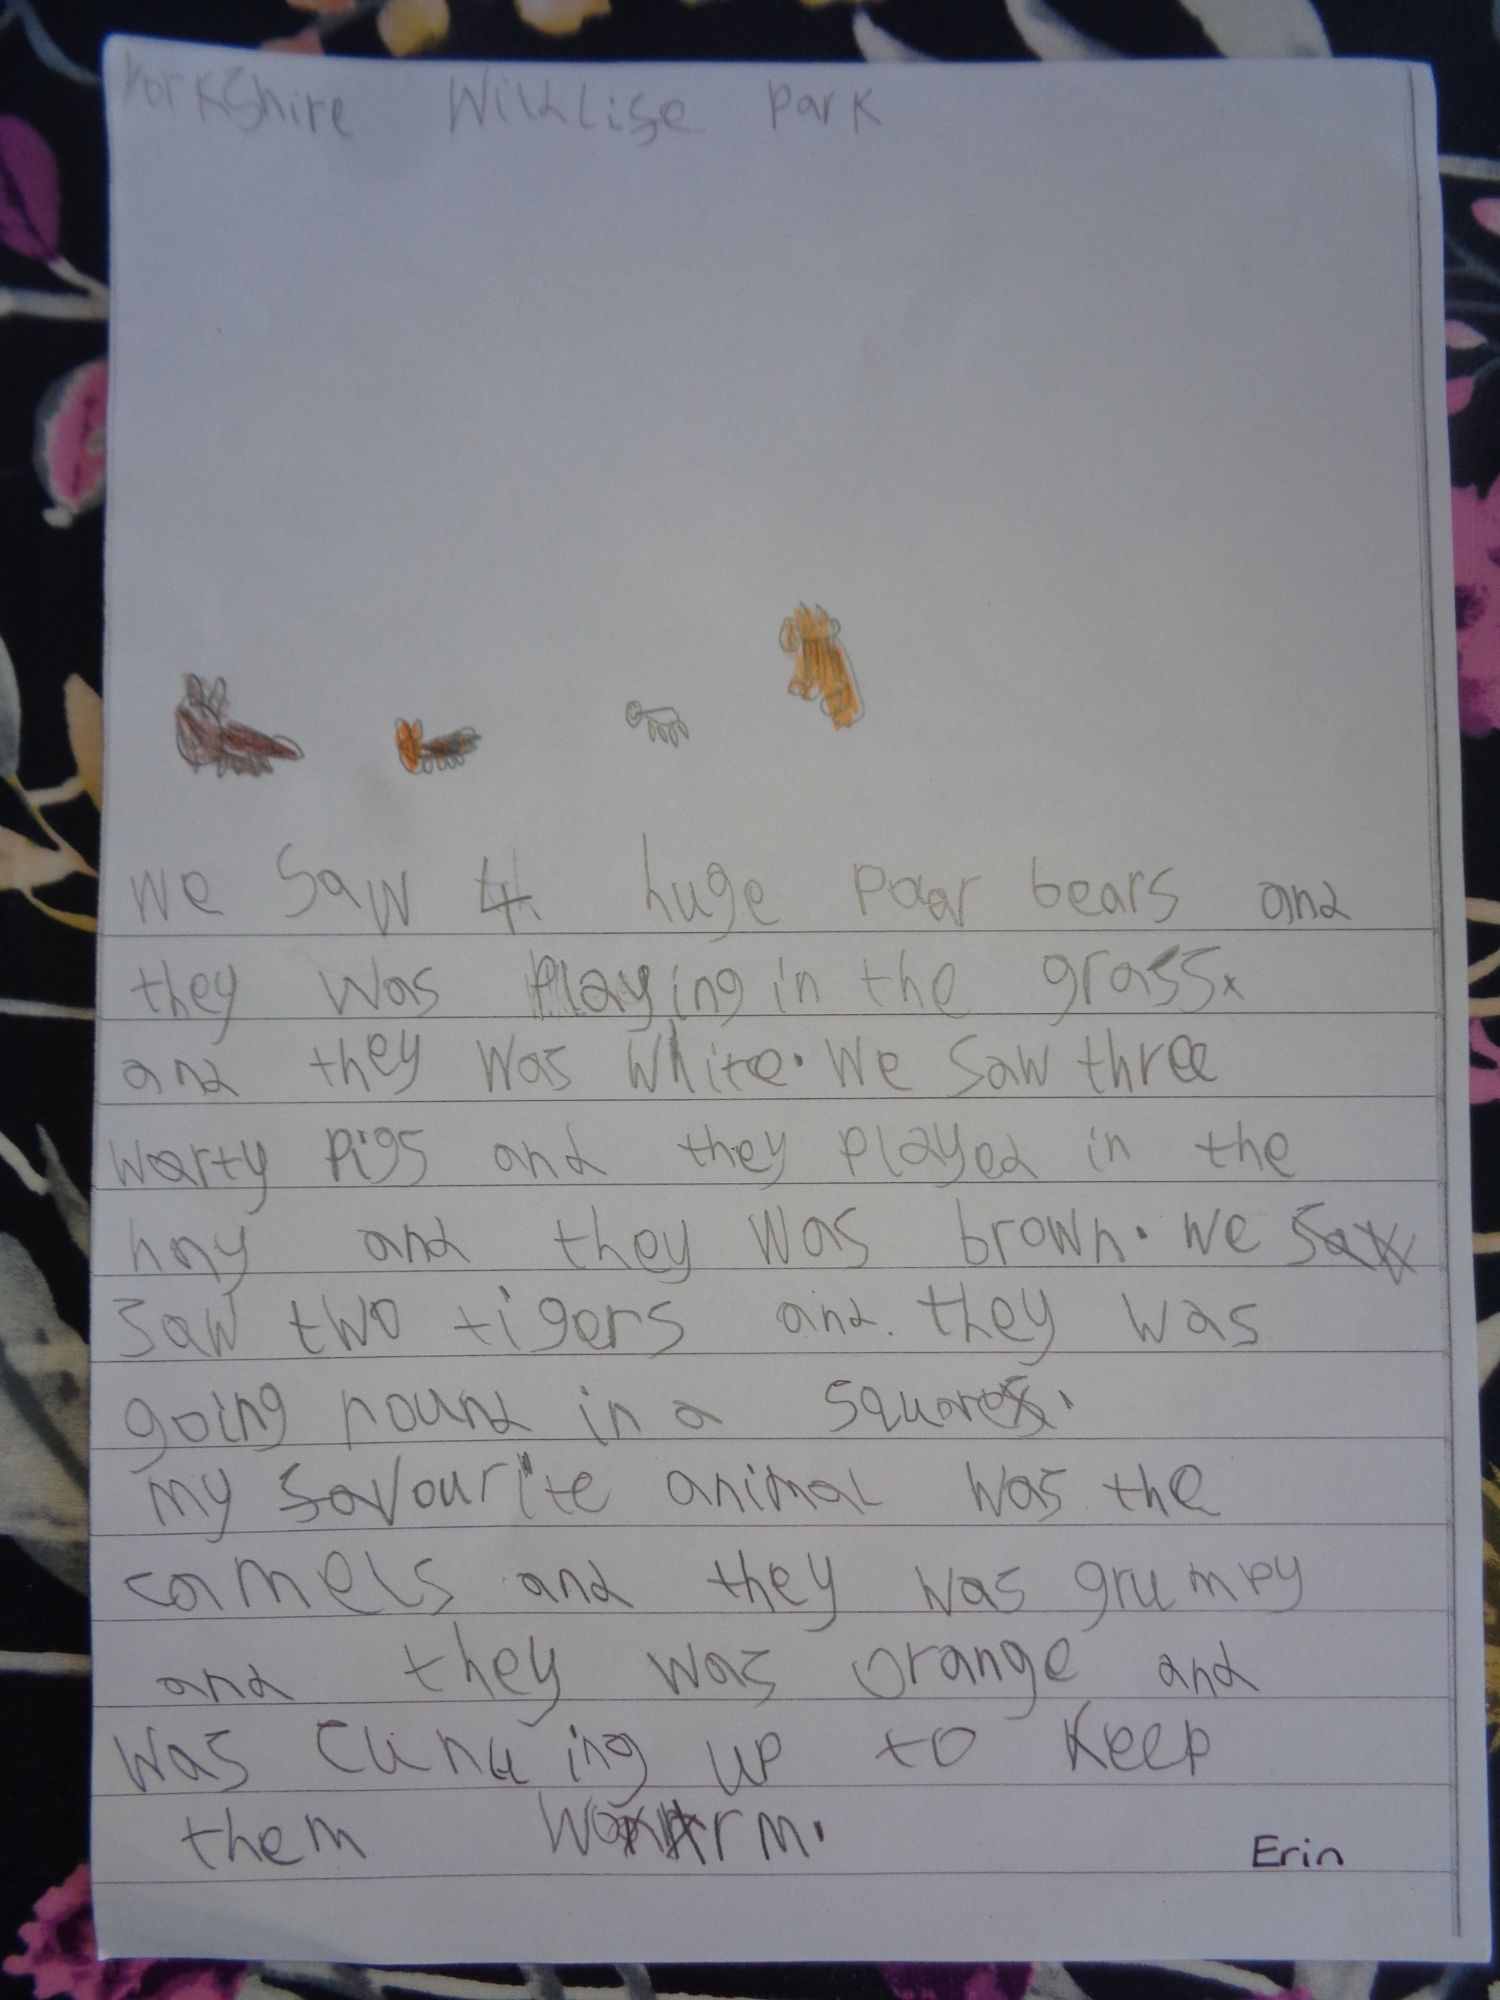 Yorkshire Wildlise Park
We saw 4 huge Poar bears and
they was Playing in the grass
and they was white. We saw three
warty Pigs and they played in the
hay and they was brown. we saw
saw two tigers and. they was
going round in a square.
my savourite animal was the
camels and they was grumpy
and they was orange and
was ing up to keep
them warm.
Erin